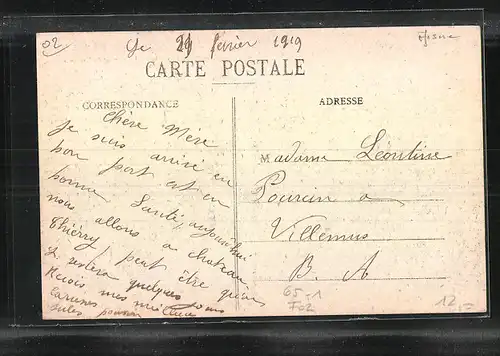 02
Ce 24 février 1919
Aisne
CARTE POSTALE
CORRESPONDANCE
ADRESSE
Chère Mère
Je suis arrivé en
bon port est en
bonne Santé, aujourd'hui
nous allons a chateau
Thiérry, peut être qu'on
restera quelques jours
Recois mes meilleurs
Madame Léontine
Pourcin a
Villemus
B. A
65-1
12.-